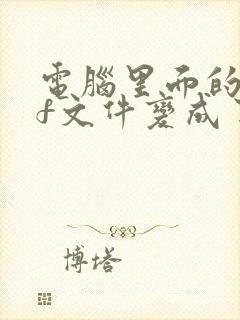 電腦里面的
f文件變成
博塔